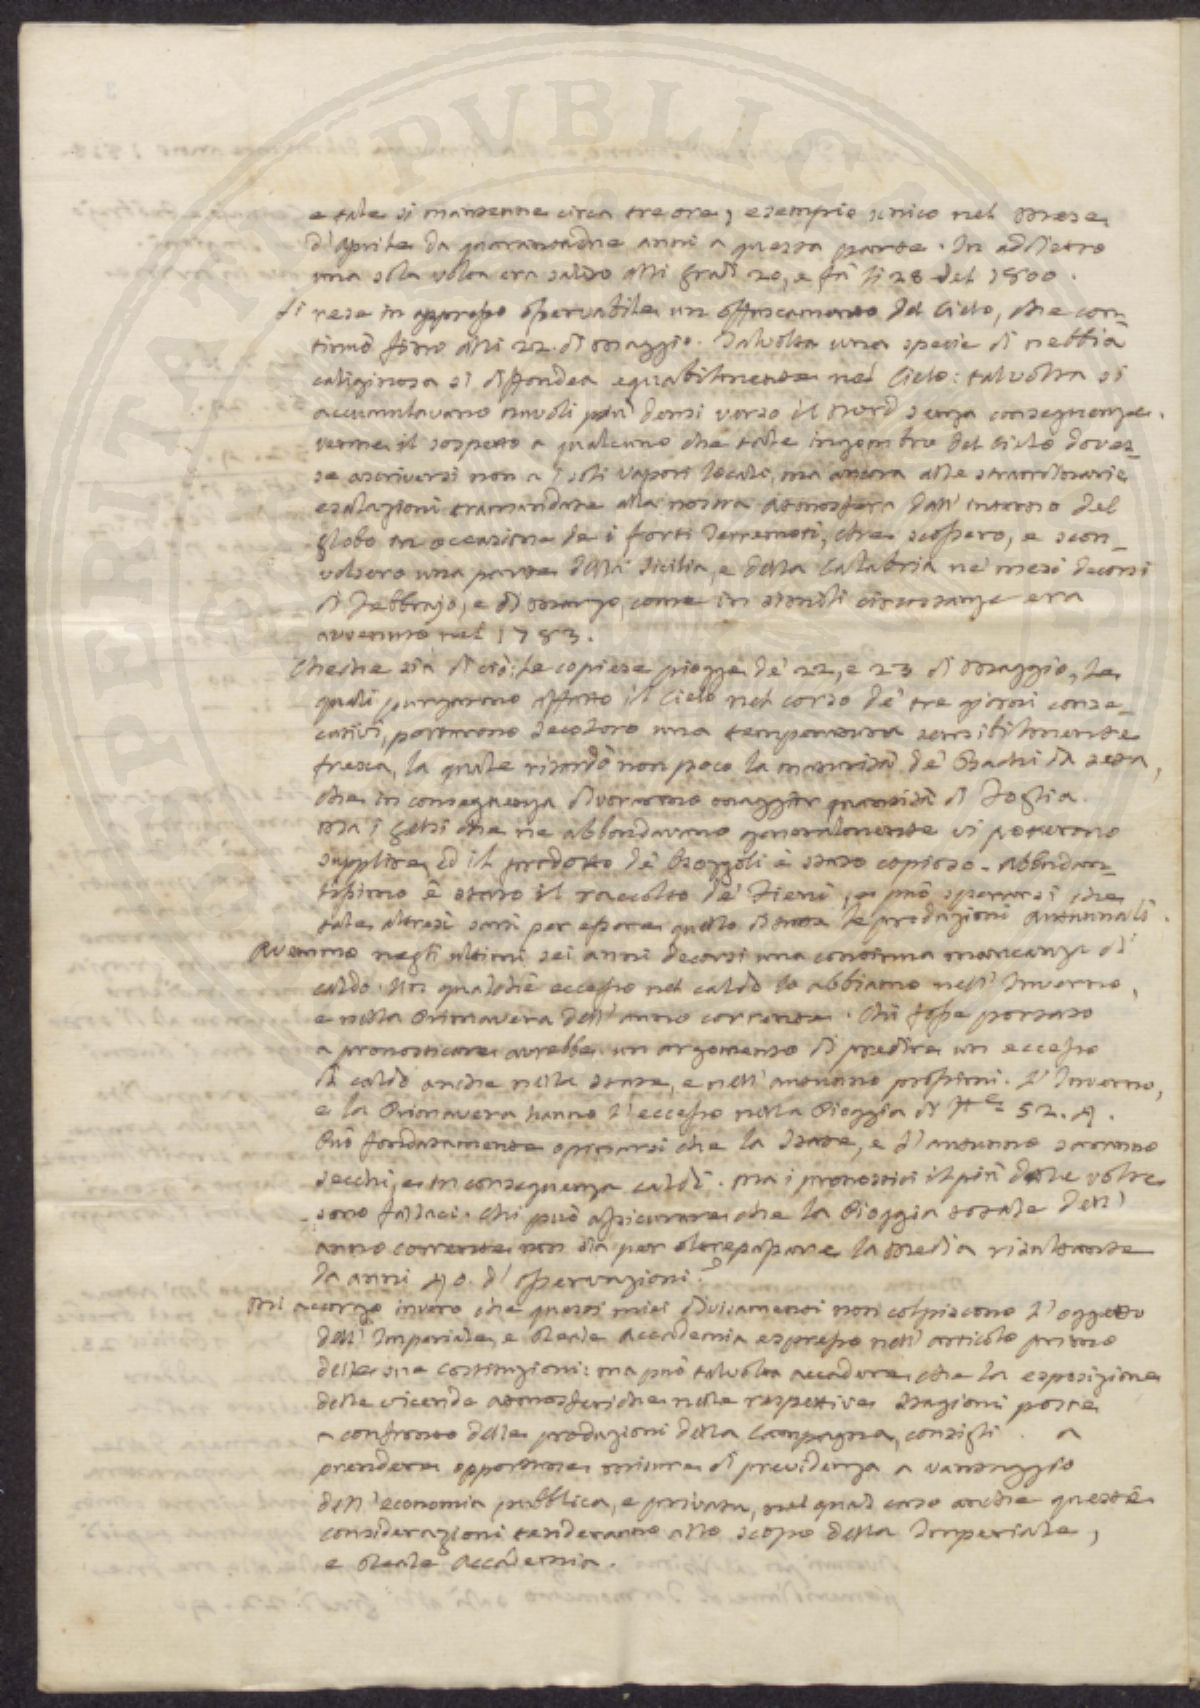 e tale si mantenne circa tre ore, esempio unico nel Mese
d'Aprile da quarantadue anni a questa parte. In addietro
una sola volta era salito alli gradi 20, e fù li 28 del 1800.
Si rese in appresso osservabile un offuscamento del Cielo, che con-
tinuò fino alli 22. di Maggio. Talvolta una specie di nebbia
caliginosa si diffondea equabilmente nel Cielo: talvolta si
accumulavano nuvoli più densi verso il Nord senza conseguenze.
Venne il sospetto a qualcuno che tale ingombro del Cielo doves-
se ascriversi non a i soli vapori locali, ma ancora alle straordinarie
esalazioni tramandate alla nostra Atmosfera dall'interno del
globo in occasione de i forti Terremoti, che scossero, e scon-
volsero una parte della Sicilia, e della Calabria ne' mesi decorsi
di Febbrajo, e di Marzo, come in simili circostanze era
avvenuto nel 1783.
Checche sia di ciò: le copiose piogge de' 22, e 23 di Maggio, le
quali purgarono affatto il Cielo nel corso de' tre giorni conse-
cutivi, portarono secoloro una temperatura sensibilmente
fresca, la quale ritardò non poco la maturità de' Bachi da seta,
che in conseguenza divorarono maggior quantità di Foglia.
Ma i Gelsi che ne abbondavano generalmente vi poterono
supplire, ed il prodotto de' Bozzoli è stato copioso. Abbondan-
tissimo è stato il raccolto de' Fieni, e può sperarsi che
tale altresì sarà per essere quello di tutte le produzioni Autunnali.
Avemmo negli ultimi sei anni decorsi una continua mancanza di
caldo. Un qualche eccesso nel caldo lo abbiamo nell'Inverno,
e nella Primavera dell'anno corrente. Chi fosse portato
a pronosticare avrebbe un argomento di predire un eccesso
di caldo anche nella state, e nell'autunno prossimi. L'Inverno,
e la Primavera hanno l'eccesso nella Pioggia di 52. 4.
Può fondatamente opinarsi che la state, e l'autunno saranno
secchi, e in conseguenza caldi. Ma i pronostici il più delle volte
sono fallaci. Chi può assicurare che la Pioggia totale dell'
anno corrente non sia per oltrepassare la Media risultante
da anni 40. d'osservazioni?
Mi accorgo invero che questi miei divisamenti non colpiscono l'oggetto
dell'Imperiale, e Reale Accademia espresso nell'articolo primo
delle sue costituzioni: ma può talvolta accadere, che la esposizione
delle vicende atmosferiche nelle respettive stagioni poste
a confronto delle produzioni della Campagna, consigli a
prendere opportune misure di previdenza a vantaggio
dell'economia pubblica, e privata, nel qual caso anche queste
considerazioni tenderanno allo scopo della Imperiale,
e Reale Accademia.